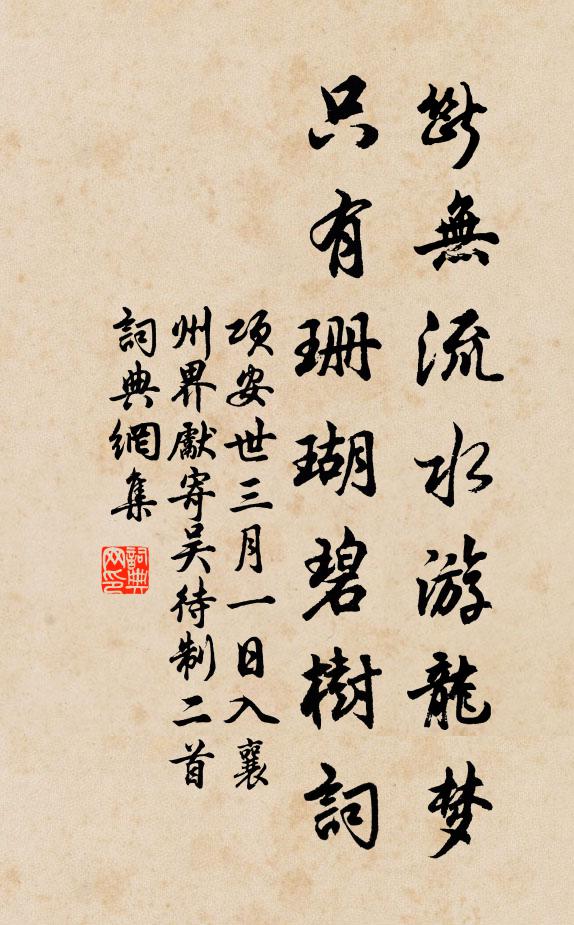 斷無流水游龍梦
只有珊瑚碧樹詞
項安世三月一日入襄
州界獻寄吴待制二首
詞典網集
詞典网印